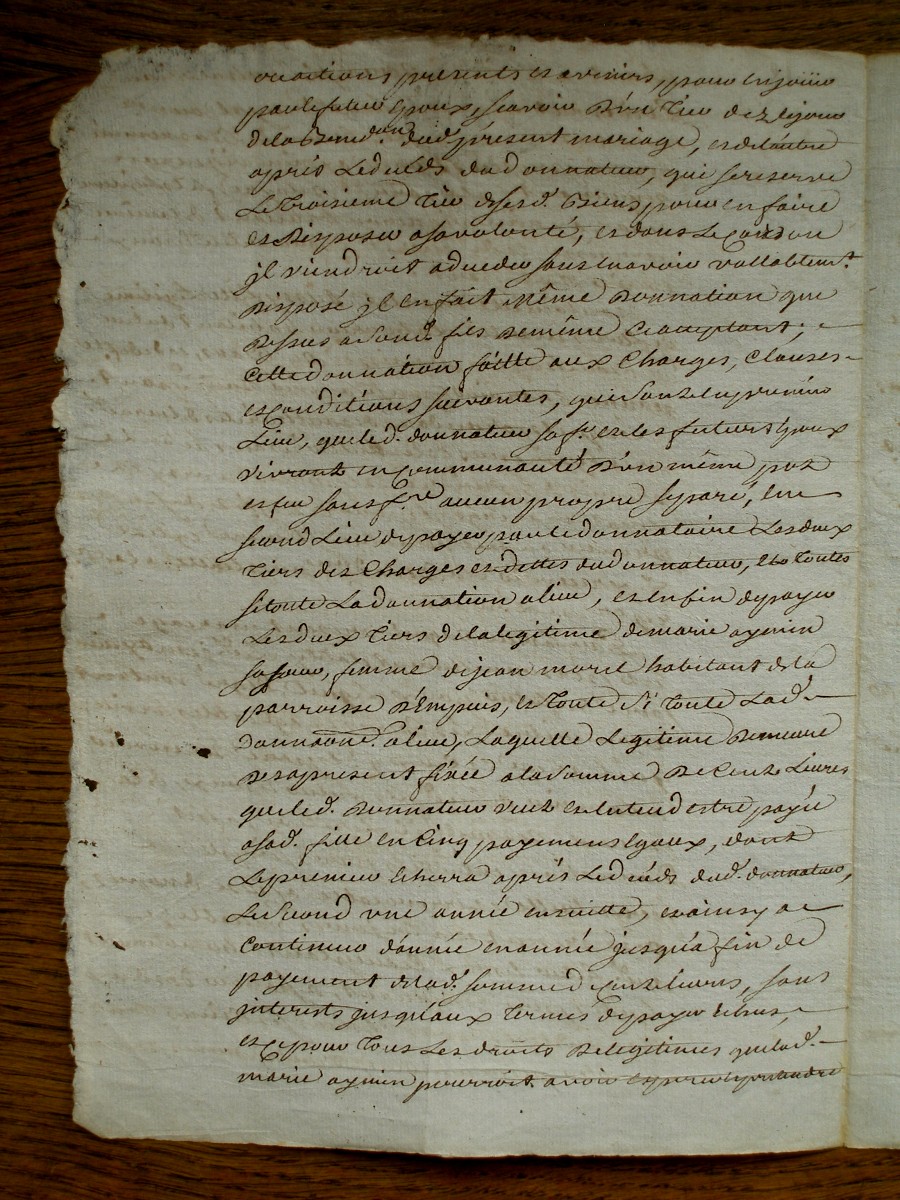 vocations presents et avenirs, pour en jouir
par le futur epoux, scavoir d'un tier dez le jour
de la bened.on du d. present mariage, et de l'autre
après le deceds du donnateur, qui se reserve
le troisième tier de ses d. biens pour en faire
et disposer a sa volonté, et dans le cas ou
il viendroit a deceder sans en avoir vallablem.t
disposé il en fait même donnation que
dessus a son d. fils de même acceptant;
cette donnation faitte aux charges, clauses
et conditions suivantes, qui sont en premier
lieu, que le d. donnateur sa f.e et les futurs epoux
vivront en communauté d'un même pot
et feu sans f.re aucun propre separé, en
second lieu de payer par le donnataire les deux
tiers des charges et dettes du donnateur, et toutes
si toute la donnation a lieu, et enfin de payer
les deux tiers de la legitime de marie aymin
sa soeur, femme de jean morel habitant de la
parroisse d'Empuis, et toute si toute la d.
donnaon. a lieu, laquelle legitime demeure
des a present fixée a la somme de cent livres
que le d. donnateur veut et entend estre payée
a sa d. fille en cinq payemens egaux, dont
le premier echerra après le decéds du d. donnateur,
le second une année ensuitte, et ainsy a
continuer d'année en année jusqu'a fin de
payement de la d. somme de cent livres, sans
interests jusqu'aux termes de payer echus,
et ce pour tous les droits de legitimes que la d.
marie aymin pourroit avoir esperer et pretendre